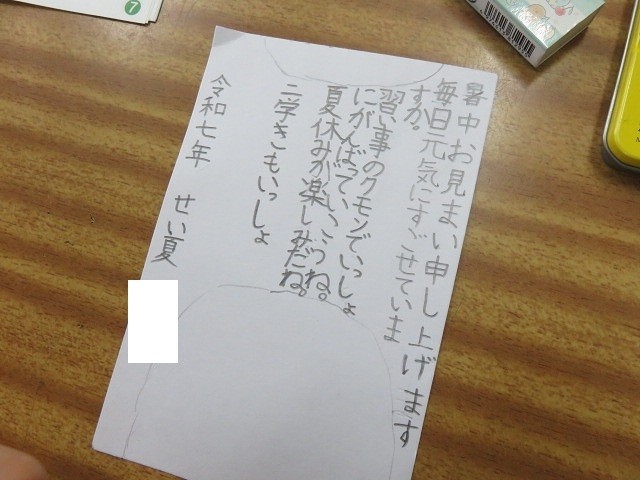 暑中お見まい申し上げます
毎日元気にすごせていま
すか。
習い事のクモンでいっしょ
にがんばっていこうね。
夏休みが楽しみだね。
二学きもいっしょ
令和七年 せい夏
7